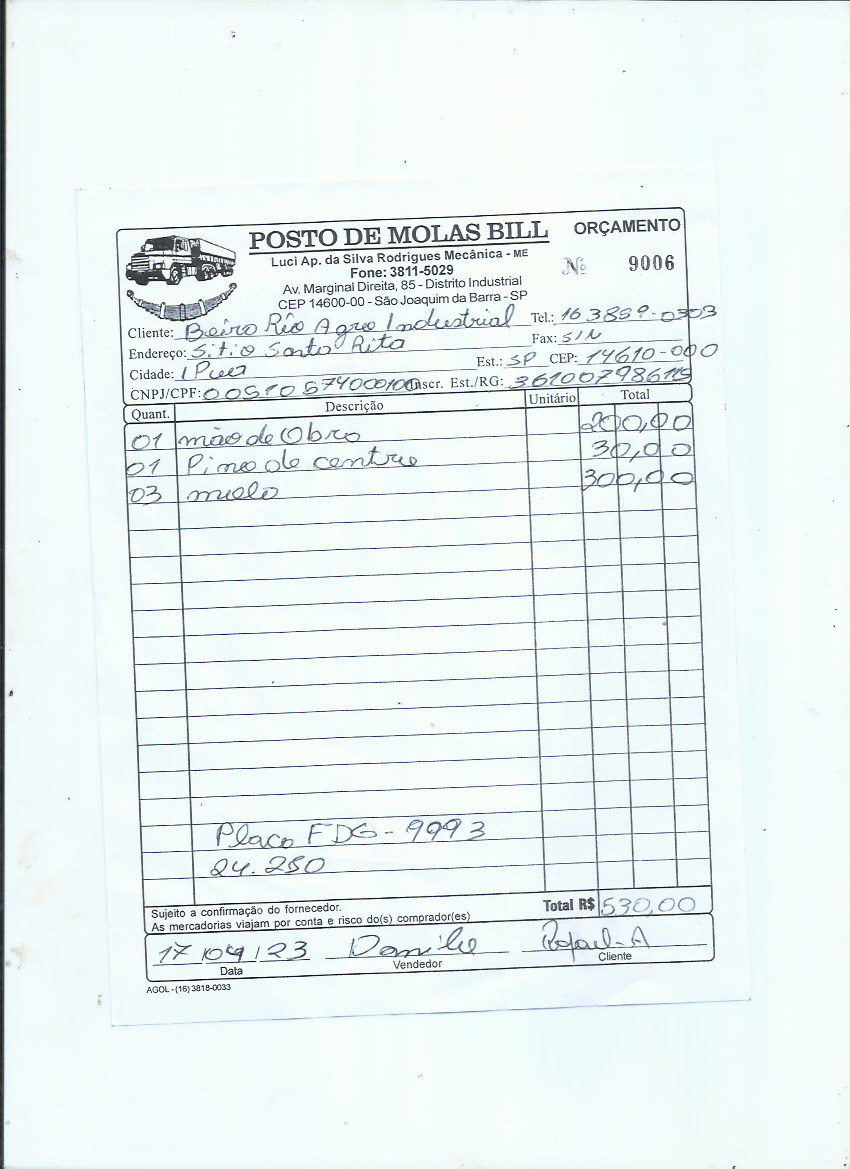 POSTO DE MOLAS BILL
ORÇAMENTO
Luci Ap. da Silva Rodrigues Mecânica - ME
Fone: 3811-5029
Nº 9006
Av. Marginal Direita, 85 - Distrito Industrial
CEP 14600-00 - São Joaquim da Barra - SP
Cliente: Beira Rio Agro Industrial Tel.: 16 3859-0303
Endereço: Sitio Santa Rita Fax: S/N
Cidade: Est.: SP CEP: 14610-000
CNPJ/CPF: Inscr. Est./RG:
Quant. Descrição Unitário Total
01 mão de Obra 200,00
01 Pino de centro 30,00
03 300,00
Placa FDG-9993
24.250
Sujeito a confirmação do fornecedor.
As mercadorias viajam por conta e risco do(s) comprador(es)
Total R$ 530,00
17/04/23 Danilo Rafael-A
Data Vendedor Cliente
AGOL - (16) 3818-0033